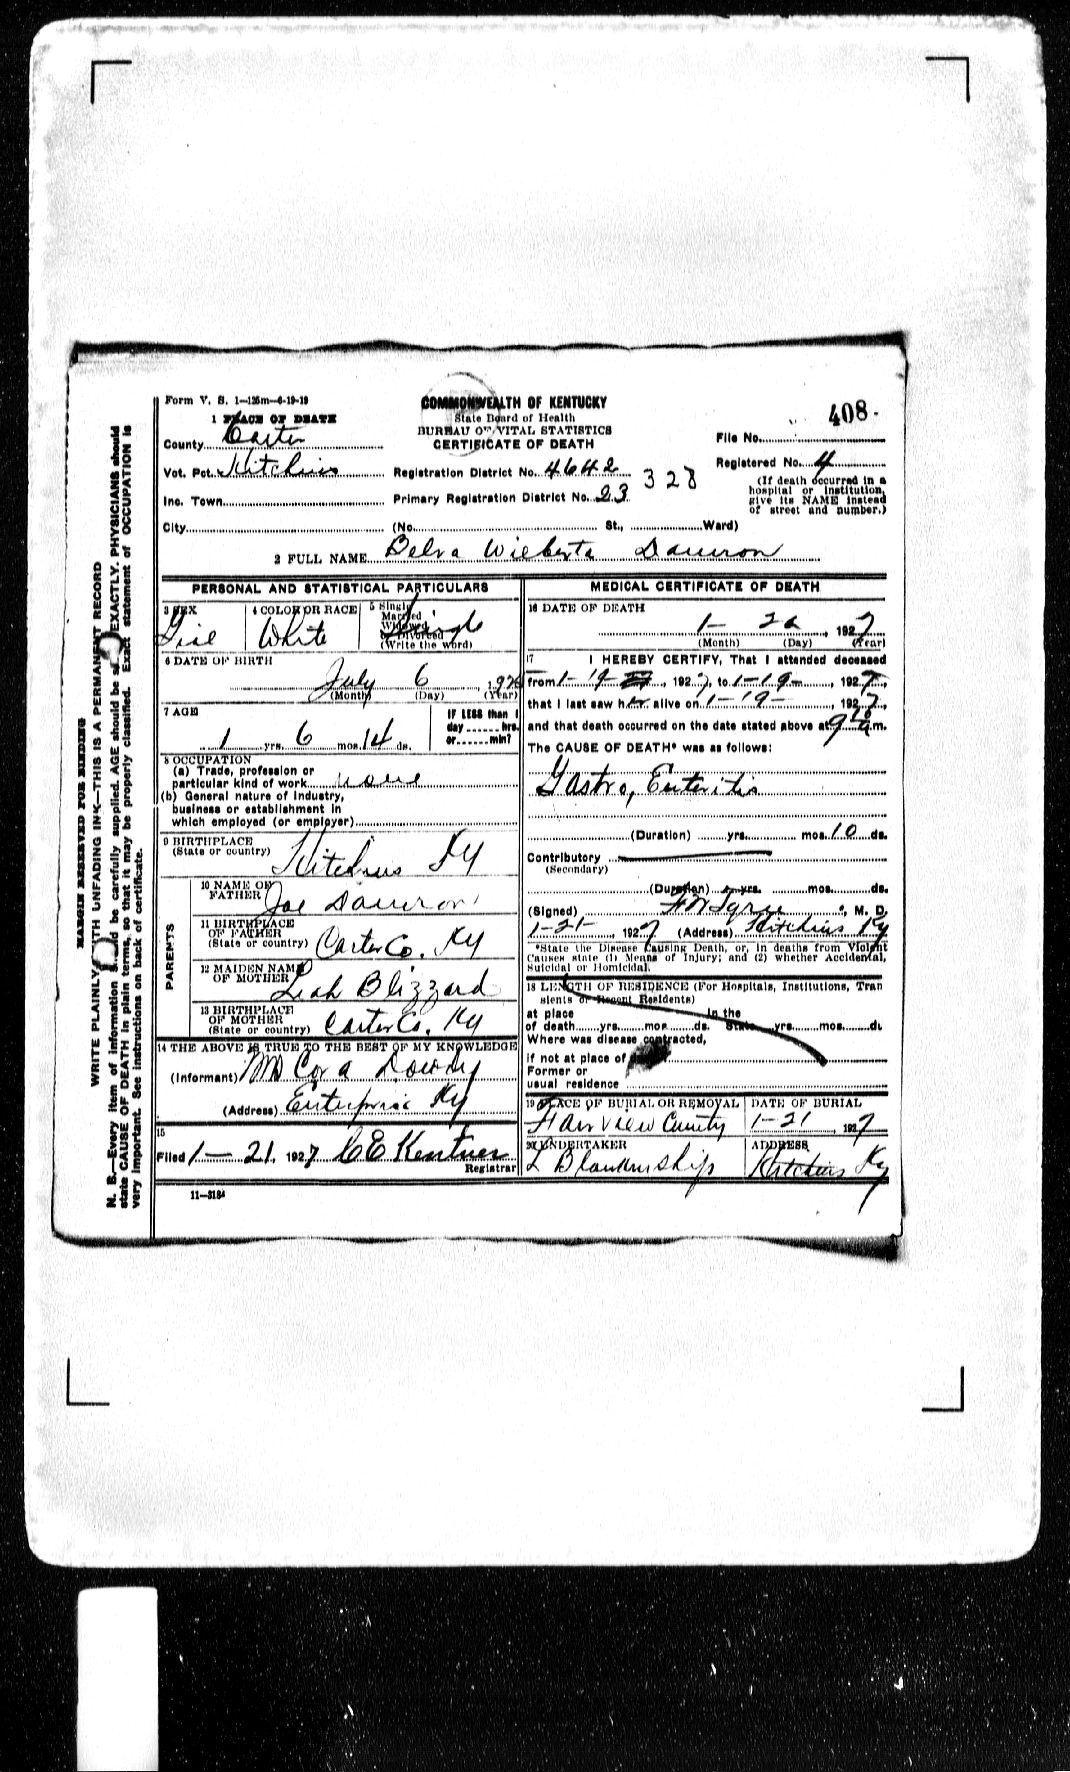 Form V. S. 1—125m—6-19-19
COMMONWEALTH OF KENTUCKY
State Board of Health
BUREAU OF VITAL STATISTICS
CERTIFICATE OF DEATH
408-
1 PLACE OF DEATH
County Carter
File No.
Vot. Pct. Hitchins
Registration District No. 4642
328
Registered No. 4
Inc. Town
Primary Registration District No. 23
(If death occurred in a hospital or institution, give its NAME instead of street and number.)
City
(No. St., Ward)
2 FULL NAME Delva Wilberta Damron
PERSONAL AND STATISTICAL PARTICULARS
3 SEX
Girl
4 COLOR OR RACE
White
5 Single
Married
Widowed
or Divorced
(Write the word)
Single
6 DATE OF BIRTH
July 6, 192
(Month) (Day) (Year)
7 AGE
1 yrs. 6 mos. 14 ds.
IF LESS than 1
day hrs.
or min?
8 OCCUPATION
(a) Trade, profession or
particular kind of work none
(b) General nature of industry,
business or establishment in
which employed (or employer)
9 BIRTHPLACE
(State or country)
Hitchins Ky
PARENTS
10 NAME OF
FATHER
Joe Damron
11 BIRTHPLACE
OF FATHER
(State or country)
Carter Co. Ky
12 MAIDEN NAME
OF MOTHER
Leah Blizzard
13 BIRTHPLACE
OF MOTHER
(State or country)
Carter Co. Ky
14 THE ABOVE IS TRUE TO THE BEST OF MY KNOWLEDGE
(Informant) Cora Dowdy
(Address) Enterprise Ky
15
Filed 1—21, 1927 C E Kentner
Registrar
11—3184
MEDICAL CERTIFICATE OF DEATH
16 DATE OF DEATH
1- 20, 1927
(Month) (Day) (Year)
17 I HEREBY CERTIFY, That I attended deceased
from 1-19, 1927, to 1-19-, 1927,
that I last saw her alive on 1-19-, 1927,
and that death occurred on the date stated above at 9 a m.
The CAUSE OF DEATH* was as follows:
Gastro, Enteritis
(Duration) yrs. mos. 10 ds.
Contributory
(Secondary)
(Duration) yrs. mos. ds.
(Signed) , M. D.
1-21-, 1927 (Address) Hitchins Ky
*State the Disease Causing Death, or, in deaths from Violent
Causes state (1) Means of Injury; and (2) whether Accidental,
Suicidal or Homicidal.
18 LENGTH OF RESIDENCE (For Hospitals, Institutions, Tran
sients or Recent Residents)
at place in the
of death yrs. mos. ds. State yrs. mos. ds.
Where was disease contracted,
if not at place of
Former or
usual residence
19 PLACE OF BURIAL OR REMOVAL
Fairview
DATE OF BURIAL
1-21, 1927
20 UNDERTAKER
L Blankenship
ADDRESS
Hitchins Ky
MARGIN RESERVED FOR BINDING
WRITE PLAINLY WITH UNFADING INK—THIS IS A PERMANENT RECORD
N. B.—Every item of information should be carefully supplied. AGE should be EXACTLY. PHYSICIANS should
state CAUSE OF DEATH in plain terms, so that it may be properly classified. Exact statement of OCCUPATION is
very important. See instructions on back of certificate.